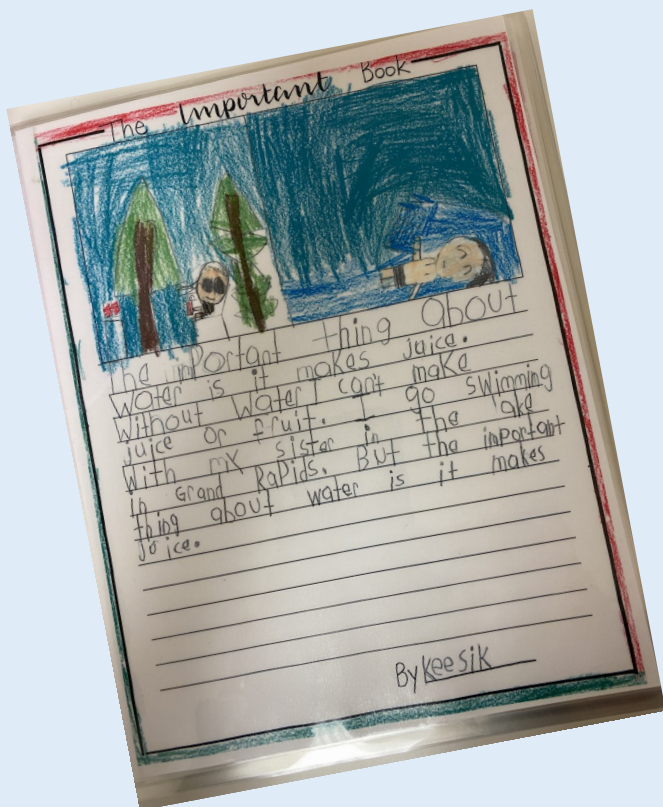 The Important Book
The important thing about
water is it makes juice.
Without water I can't make
juice or fruit. I go swimming
with my sister in the lake
in Grand Rapids. But the important
thing about water is it makes
joice.
By Keesik